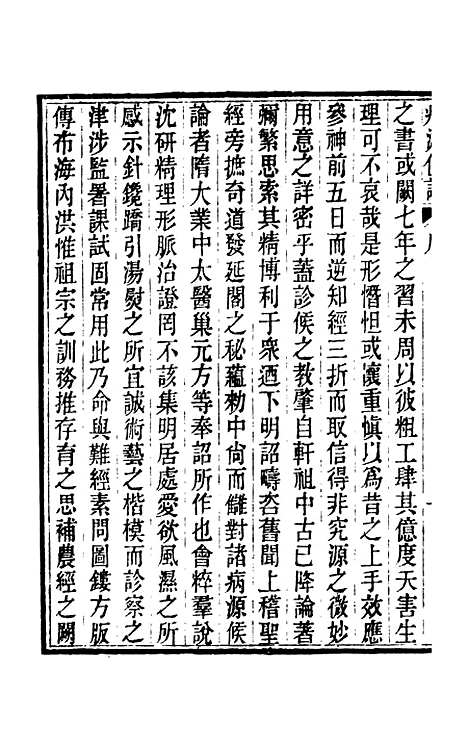 之書或闕七年之習未周以彼粗工肆其億度夭害生
理可不哀哉是形憯怛或懷重愼以爲昔之上手效應
參神前五日而逆知經三折而取信得非究源之微妙
用意之詳密乎蓋診候之教肇自軒祖中古已降論著
彌繁思索其精博利于衆迺下明詔疇咨舊聞上稽聖
經旁摭奇道發延閣之秘蘊勅中尚而讎對諸病源候
論者隋大業中太醫巢元方等奉詔所作也會粹羣說
沈研精理形脈治證罔不該集明居處愛欲風濕之所
感示針鑱蹻引湯熨之所宜誠術藝之楷模而診察之
津涉監署課試固常用此乃命與難經素問圖鏤方版
傳布海內洪惟祖宗之訓務推存育之思補農經之闕